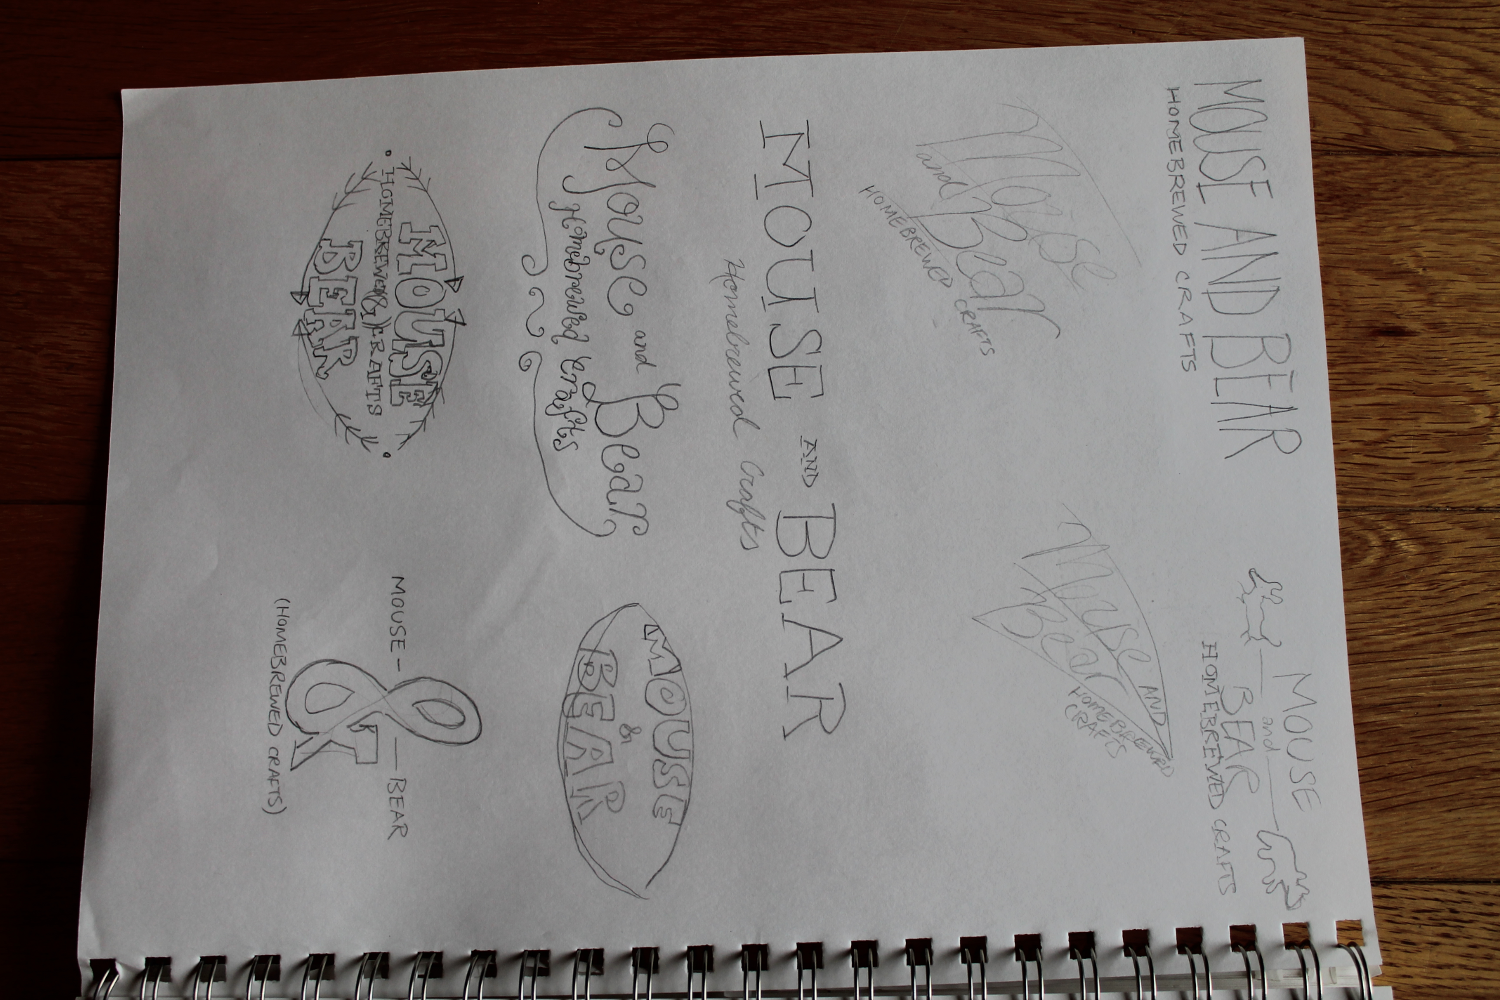 MOUSE AND BEAR
HOMEBREWED CRAFTS
MOUSE
and
BEAR
HOMEBREWED CRAFTS
Mouse
and Bear
HOMEBREWED CRAFTS
Mouse AND
Bear
HOMEBREWED
CRAFTS
MOUSE AND BEAR
Homebrewed Crafts
Mouse and Bear
Homebrewed Crafts
MOUSE
&
BEAR
MOUSE
HOMEBREWED CRAFTS
&
BEAR
MOUSE - & - BEAR
(HOMEBREWED CRAFTS)